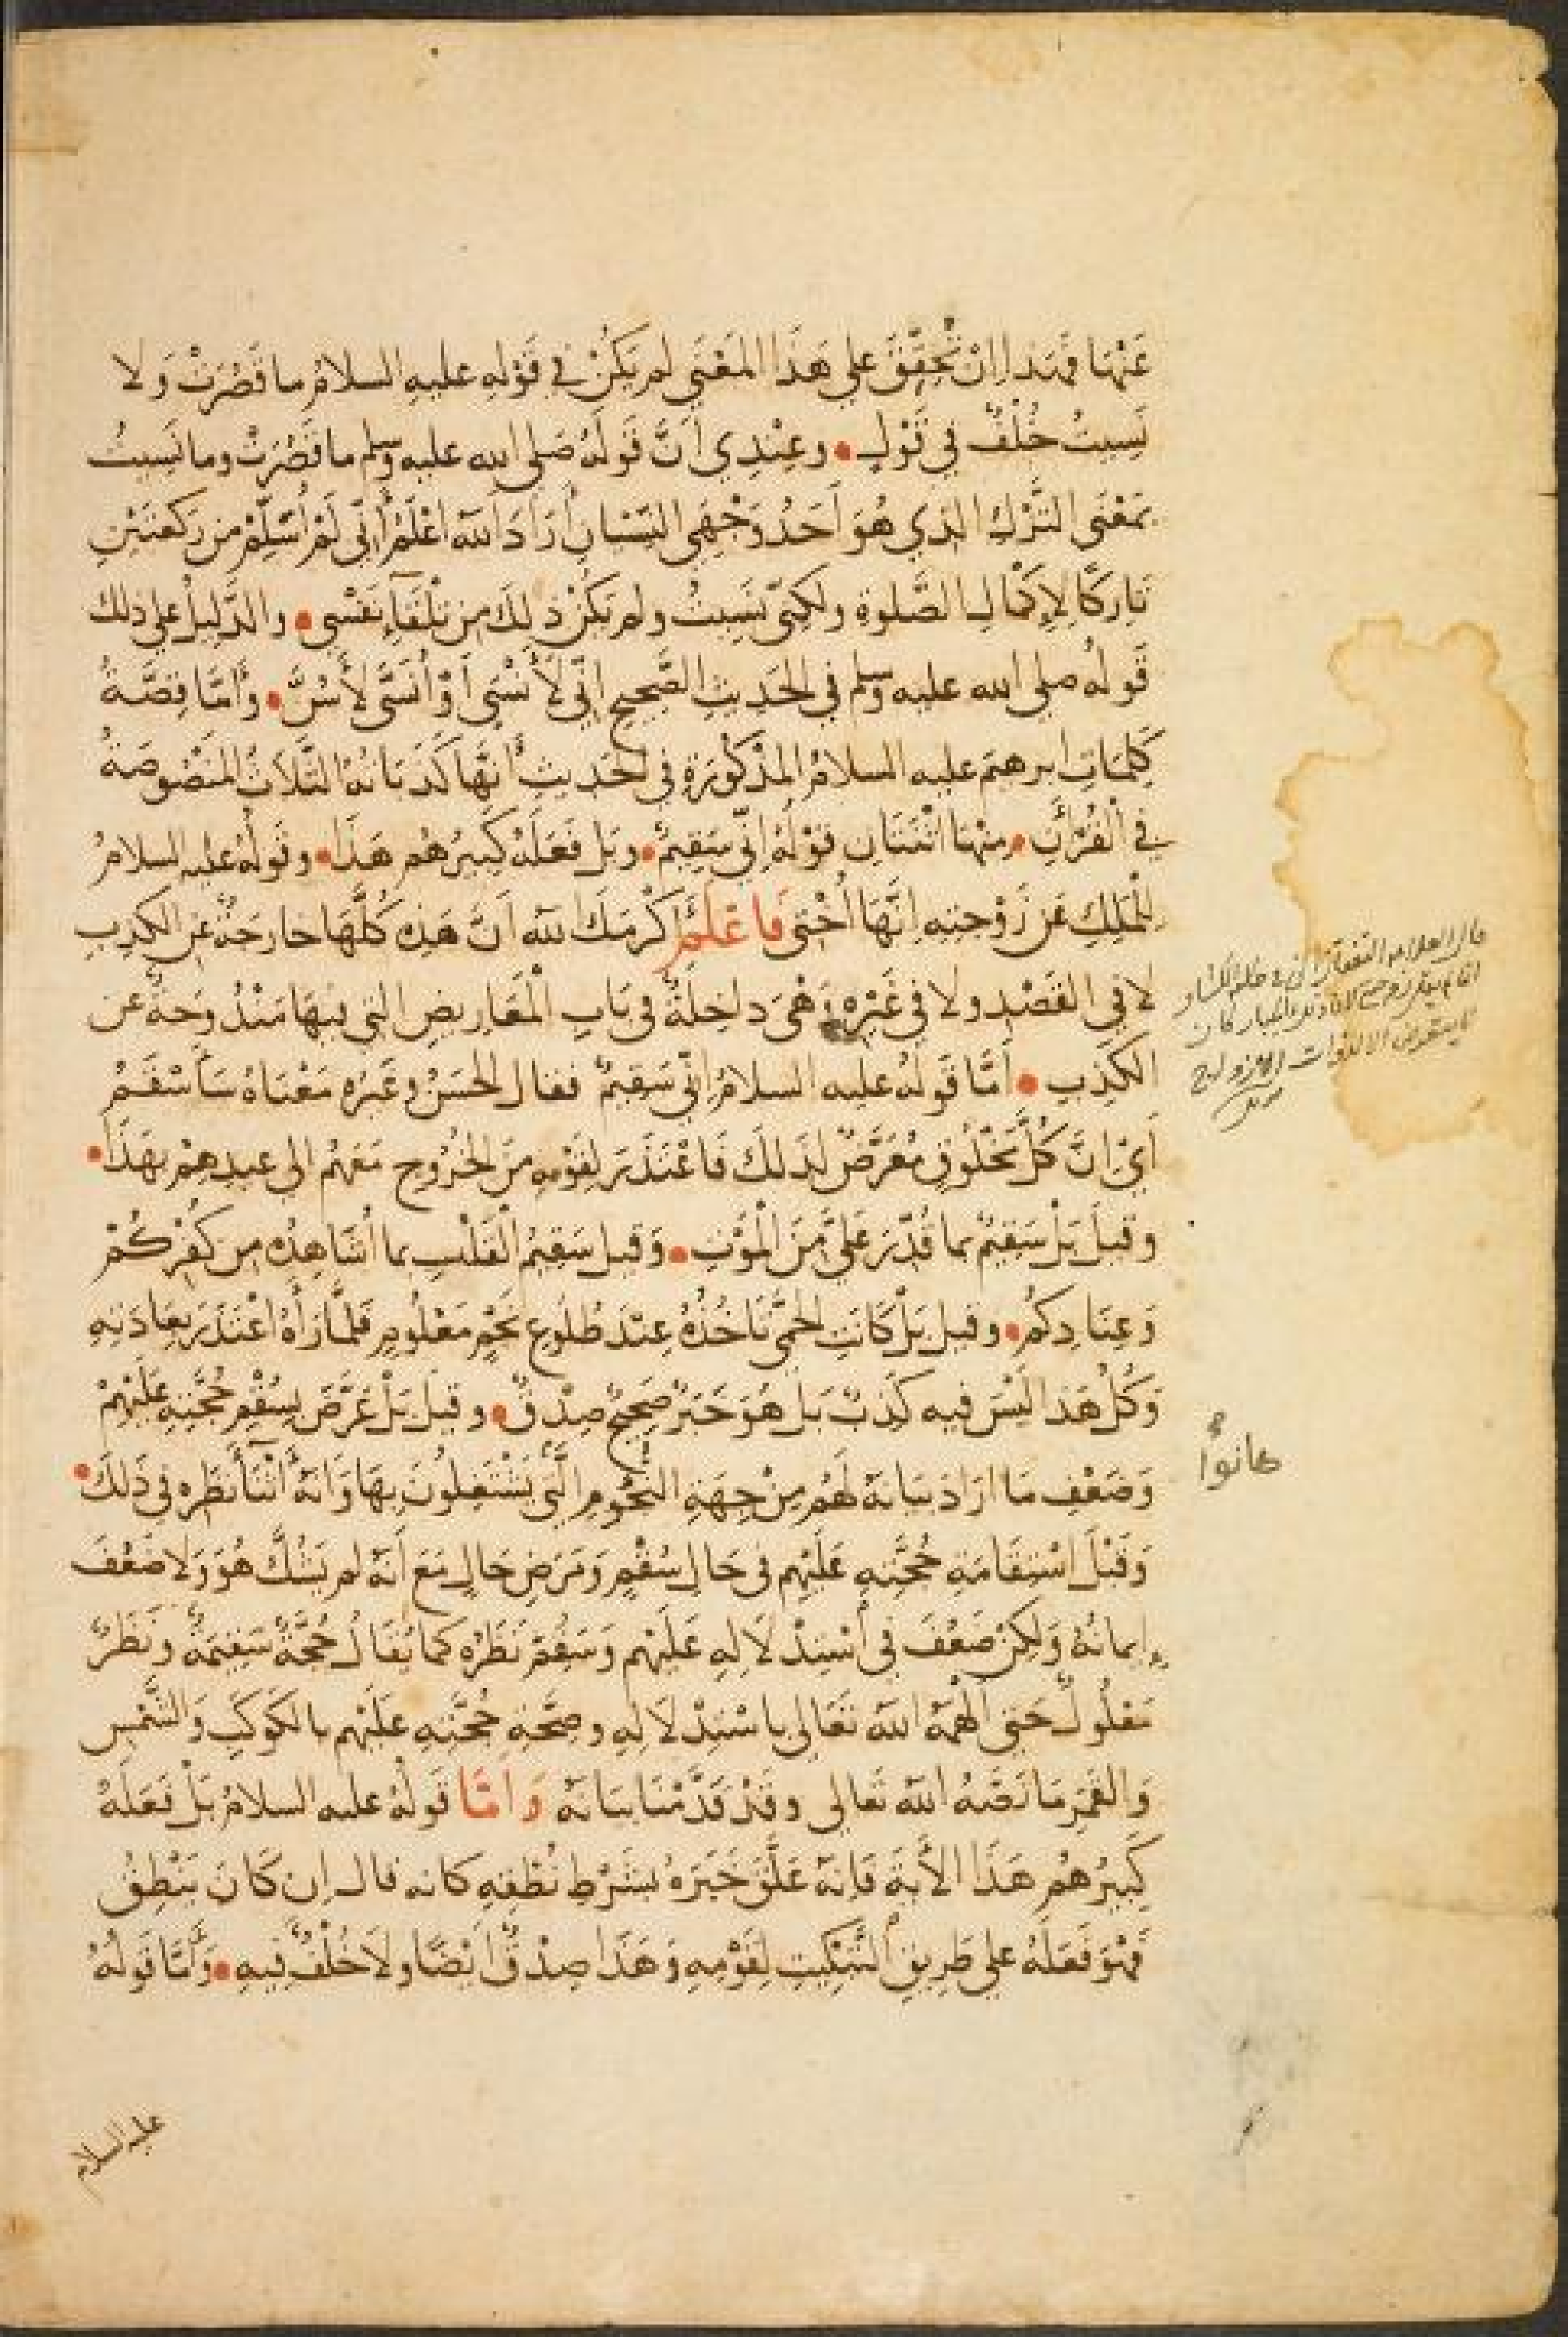 عَنْهَا فَهَذا انْ تَحَقَّقَ علي هَذَا المَعْنَى لم يَكُنْ في قَوْلِهِ عليه السلامُ ما قَصُرَتْ وَلا
نَسِيتُ خُلْفٌ في قَوْلٍ • وعِنْدِي اَنَّ قَوْلَهُ صَلى الله عليه وسلم ما قَصُرَتْ وما نَسِيتُ
بمَعْنَى التَّرْكِ الذي هُوَ اَحَدُ وَجْهَي النِّسْيَانِ اَرَادَ اللهُ اعْلَمُ اَنِّي لَمْ اُسَلِّمْ من رَكعَتَيْنِ
تارِكًا لِإكْمَالِ الصَّلوةِ ولَكِنِّي نَسِيتُ ولم يَكُنْ ذلِكَ مِن تِلْقَآءِ نَفْسِي • والدَّلِيلُ علي ذلك
قَولُهُ صلي الله عليه وسلم في الحَدِيثِ الصَّحِيحِ اِنِّي لَأَنْسَى اَوْ اُنَسَّى لأَسُنَّ • وَأَمَّا قِصَّةُ
كَلِمَاتِ ابرهيم عليه السلامُ المَذْكُورَةِ في الحَدِيثِ أَنَّها كَذَبَاتُهُ الثَّلَاثُ المَنْصُوصَةُ
في الْقُرْآنِ • مِنْهَا اثْنَتَانِ قَوْلُهُ اِنِّي سَقِيمٌ • وبَل فَعَلَهُ كَبِيرُهُم هَذَا • وقَولُهُ عليه السلامُ
لِلْمَلِكِ عَن زَوْجَتِهِ اِنَّهَا أُخْتِي فَاعْلَمْ اَكْرَمَكَ اللهُ اَنَّ هَذِهِ كُلَّهَا خارِجَةٌ عَنِ الكَذِبِ
لا فِي القَصْدِ ولا في غَيْرِهِ وَهْيَ دَاخِلَةٌ في بَابِ الْمَعَارِيضِ التي فِيهَا مَنْدُوحَةٌ عَن
الكَذِبِ • أمَّا قَولُهُ عليه السلامُ اِنِّي سَقِيمٌ فقال الحَسَنُ وغَيرُه مَعْنَاهُ سَأَسْقَمُ
أَيْ اِنَّ كُلَّ مَخْلُوقٍ مُعَرَّضٌ لِذَلكَ فَاعْتَذَرَ لِقَوْمِهِ مِنَ الخُرُوجِ مَعَهُم الي عيدِهِمْ بِهَذَا •
وقيلَ بَلْ سَقِيمٌ بما قُدِّرَ عَلَيَّ مِنَ الْمَوْتِ • وَقيل سَقِيمُ الْقَلْبِ بما اُشَاهِدُهُ مِن كُفْرِكُمْ
وَعِنَادِكُم • وقيل بَلْ كَانَتِ الحُمَّى تَاخُذُهُ عِنْدَ طُلُوعِ نَجْمٍ مَعْلُومٍ فَلَمَّا رَآهُ اعْتَذَرَ بِعَادَتِهِ
وَكُلُّ هَذا لَيْسَ فيه كَذِبٌ بَل هُوَ خَبَرٌ صَحِيحٌ صِدْقٌ • وقيل بَلْ عَرَّضَ بِسُقْمِ حُجَّتِهِ عَلَيْهِمْ
وَضَعْفِ مَا ارَادَ بَيَانَهُ لَهُم مِنْ جِهَةِ النُّجُومِ الَّتِي يَشْتَغِلُونَ بِهَا وَأَنَهُ أَثْنَآ نَظَرِهِ في ذَلكَ •
كانوا
وَقَبْلَ اسْتِقَامَةِ حُجَّتِهِ عَلَيْهِم في حَالِ سُقْمٍ وَمَرَضِ حَالٍ مَعَ اَنَّهُ لم يَشُكَّ هُوَ وَلا ضَعُفَ
إيمانُهُ وَلكِنْ ضَعُفَ في اسْتِدْلَالِهِ عَلَيْهِم وَسَقُمَ نَظَرُهُ كما يُقَالُ حُجَّةٌ سَقِيمَةٌ ونَظَرٌ
مَعْلُولٌ حَتي اَلْهَمَهُ اللهُ تَعَالى بِاسْتِدْلَالِهِ وصِحَّةِ حُجَّتِهِ عَلَيْهِم بالكَوكَبِ وَالشَّمْسِ
وَالقَمَرِ مَا نَصَّهُ اللهُ تَعَالي وقَدْ قَدَّمْنَا بيَانَهُ وَامَّا قَولُهُ عليه السلامُ بَلْ فَعَلَهُ
كَبِيرُهُم هَذَا الأيَةَ فَاِنَهُ عَلَّقَ خَبَرَهُ بشَرْطِ نُطْقِهِ كانه قال اِن كَانَ يَنْطِقُ
فَهُوَ فَعَلَهُ علي طَرِيقِ التَّبْكِيتِ لِقَوْمِهِ وَهَذَا صِدْقٌ ايْضًا ولاَ خُلْفَ فِيهِ • وَأَمَّا قَولُهُ
عليه السلام